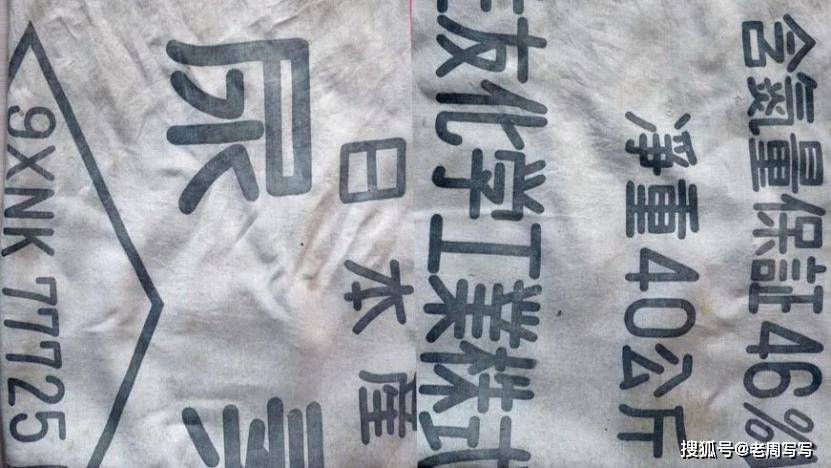 含氮量保証46%
淨重40公斤
友化学工業株式
日本産
尿素
9XNK 77725
搜狐号@老周写写